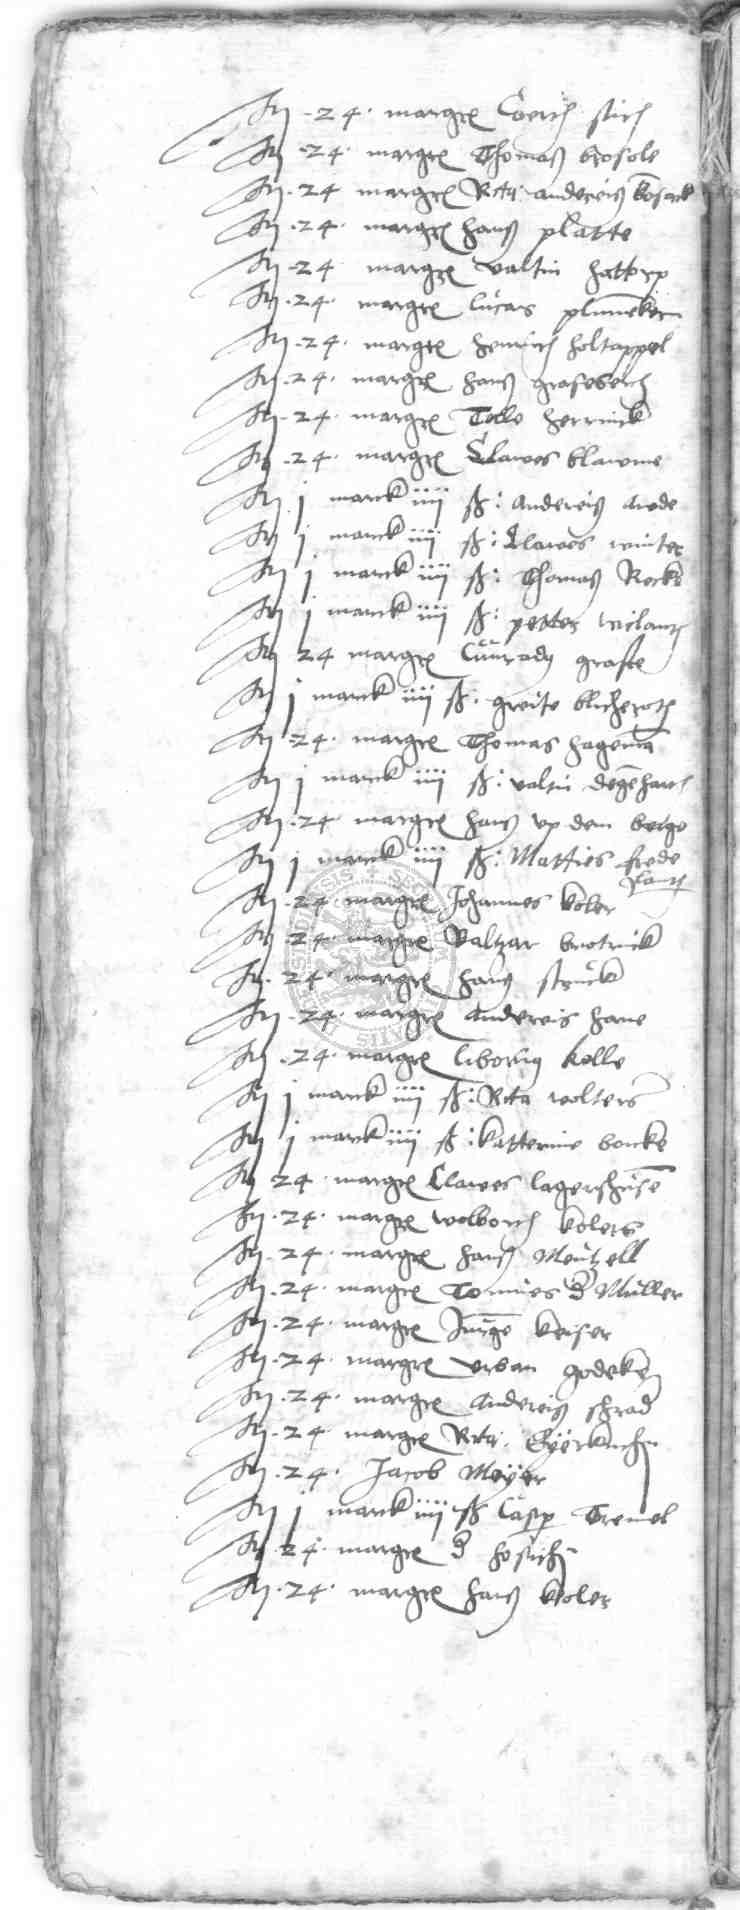 It 24 margr Coert
It 24 margr Thomas brosole
It 24 margr Rita andereis kosack
It 24 margr hans platte
It 24 margr valtin hattorp
It 24 margr lucas
It 24 margr henrich holtappel
It 24 margr hans
It 24 margr Tolle herrinck
It 24 margr Clawes blawme
It j marck iiii ß andereis
It j marck iiii ß Clawes winter
It j marck iiii ß Thomas Rocke
It j marck iiii ß petter
It 24 margr Cunrady grafte
It j marck iiii ß greite
It 24 margr Thomas hagema
It j marck iiii ß valtin degehart
It 24 margr hans up dem berge
It j marck iiii ß Matties frede
It 24 margr Johannes koler
It 24 margr Baltzar
It 24 margr hans struck
It 24 margr andereis hane
It 24 margr liborius kolle
It j marck iiii ß Rita wolters
It j marck iiii ß katterine boncke
It 24 margr Clawes lagershuse
It 24 margr wolborch kolers
It 24 margr hans Mentzell
It 24 margr Tonnies d Muller
It 24 margr Jurge keiser
It 24 margr urban godeken
It 24 margr andereis schrad
It 24 margr Rita
It 24 Jacob Meyer
It j marck iiii ß Casp Tremel
It 24 margr d
It 24 margr hans koler